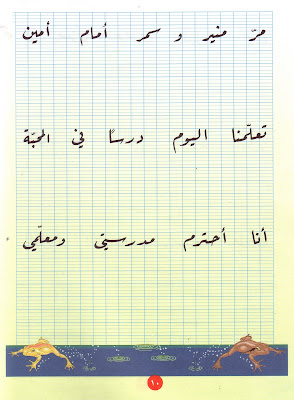 مرّ منير و سمر أمام أمين
تعلّمنا اليوم درسًا في المحبّة
أنا أحترم مدرستي ومعلّمي
١٠